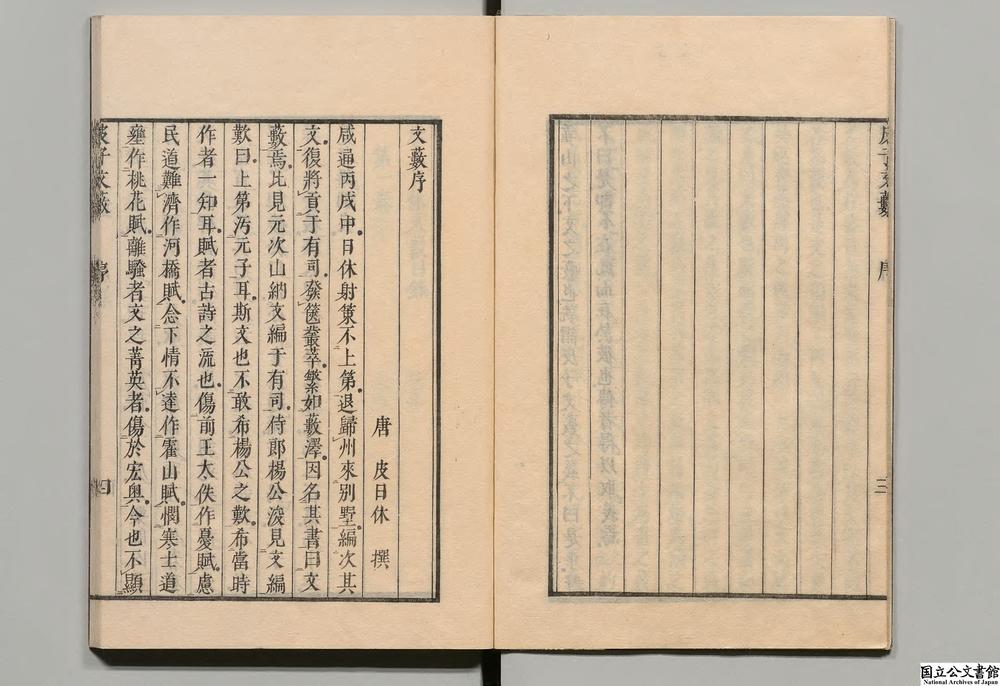 皮子文藪
序
三
文藪序
唐 皮日休 撰
咸通丙戌中日休射策不上第退歸州來別墅編次其
文復將貢于有司發篋叢萃繁如藪澤因名其書曰文
藪焉比見元次山納文編于有司侍郎楊公浚見文編
歎曰上第汚元子耳斯文也不敢希楊公之歎希當時
作者一知耳賦者古詩之流也傷前王太佚作憂賦慮
民道難濟作河橋賦念下情不達作霍山賦憫寒士道
壅作桃花賦離騷者文之菁英者傷於宏奧今也不顯
皮子文藪
序
四
国立公文書館
National Archives of Japan